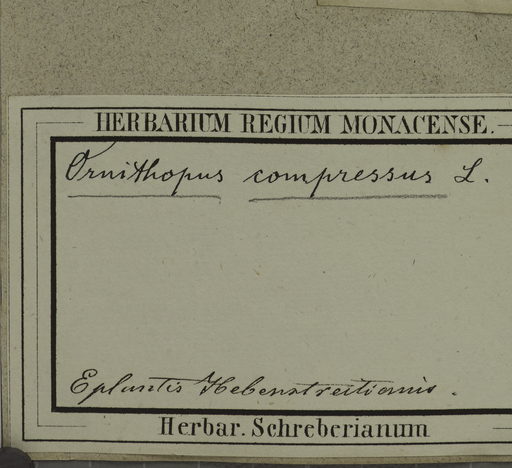 HERBARIUM REGIUM MONACENSE.
Ornithopus compressus L.
E plantis Hebenstreitianis.
Herbar. Schreberianum